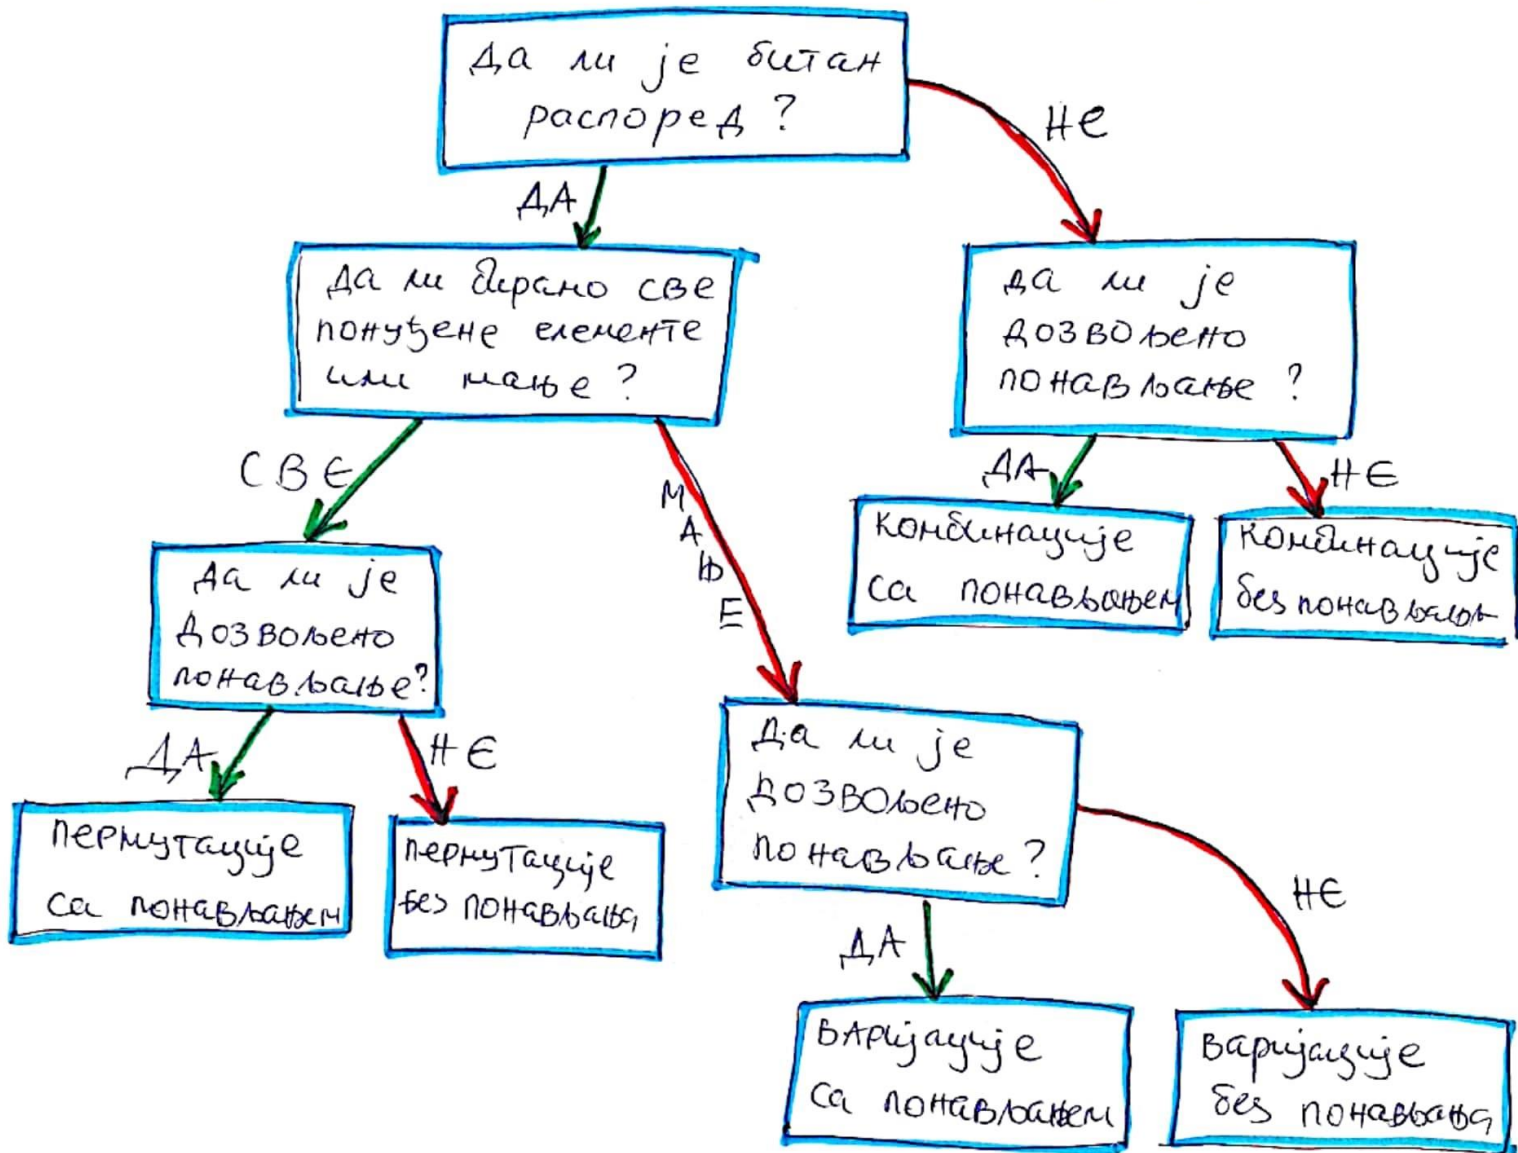 Да ли је битан
распоред?
НЕ
ДА
Да ли бирамо све
понуђене елементе
или мање?
Да ли је
дозвољено
понављање?
СВЕ
МАЊЕ
ДА
НЕ
комбинације
са понављањем
комбинације
без понављања
Да ли је
дозвољено
понављање?
ДА
НЕ
пермутације
са понављањем
пермутације
без понављања
Да ли је
дозвољено
понављање?
ДА
НЕ
варијације
са понављањем
варијације
без понављања